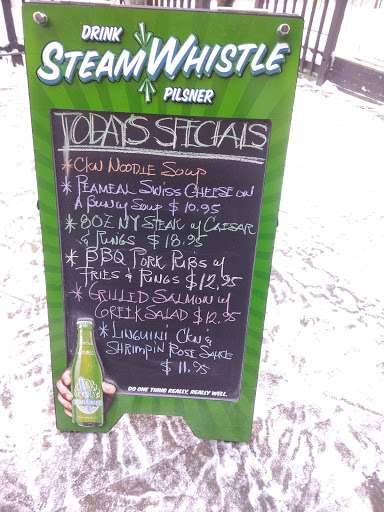 DRINK
STEAMWHISTLE
PILSNER
TODAY'S SPECIALS
* CKN NOODLE SOUP
* PEAMEAL SWISS CHEESE ON
A BUN w/ SOUP $10.95
* 8OZ NY STEAK w/ CAESAR
& RINGS $18.95
* BBQ PORK RIBS w/
FRIES & RINGS $12.95
* GRILLED SALMON w/
GREEK SALAD $12.95
* LINGUINI CKN &
SHRIMP IN ROSE SAUCE
$11.95
DO ONE THING REALLY, REALLY WELL.